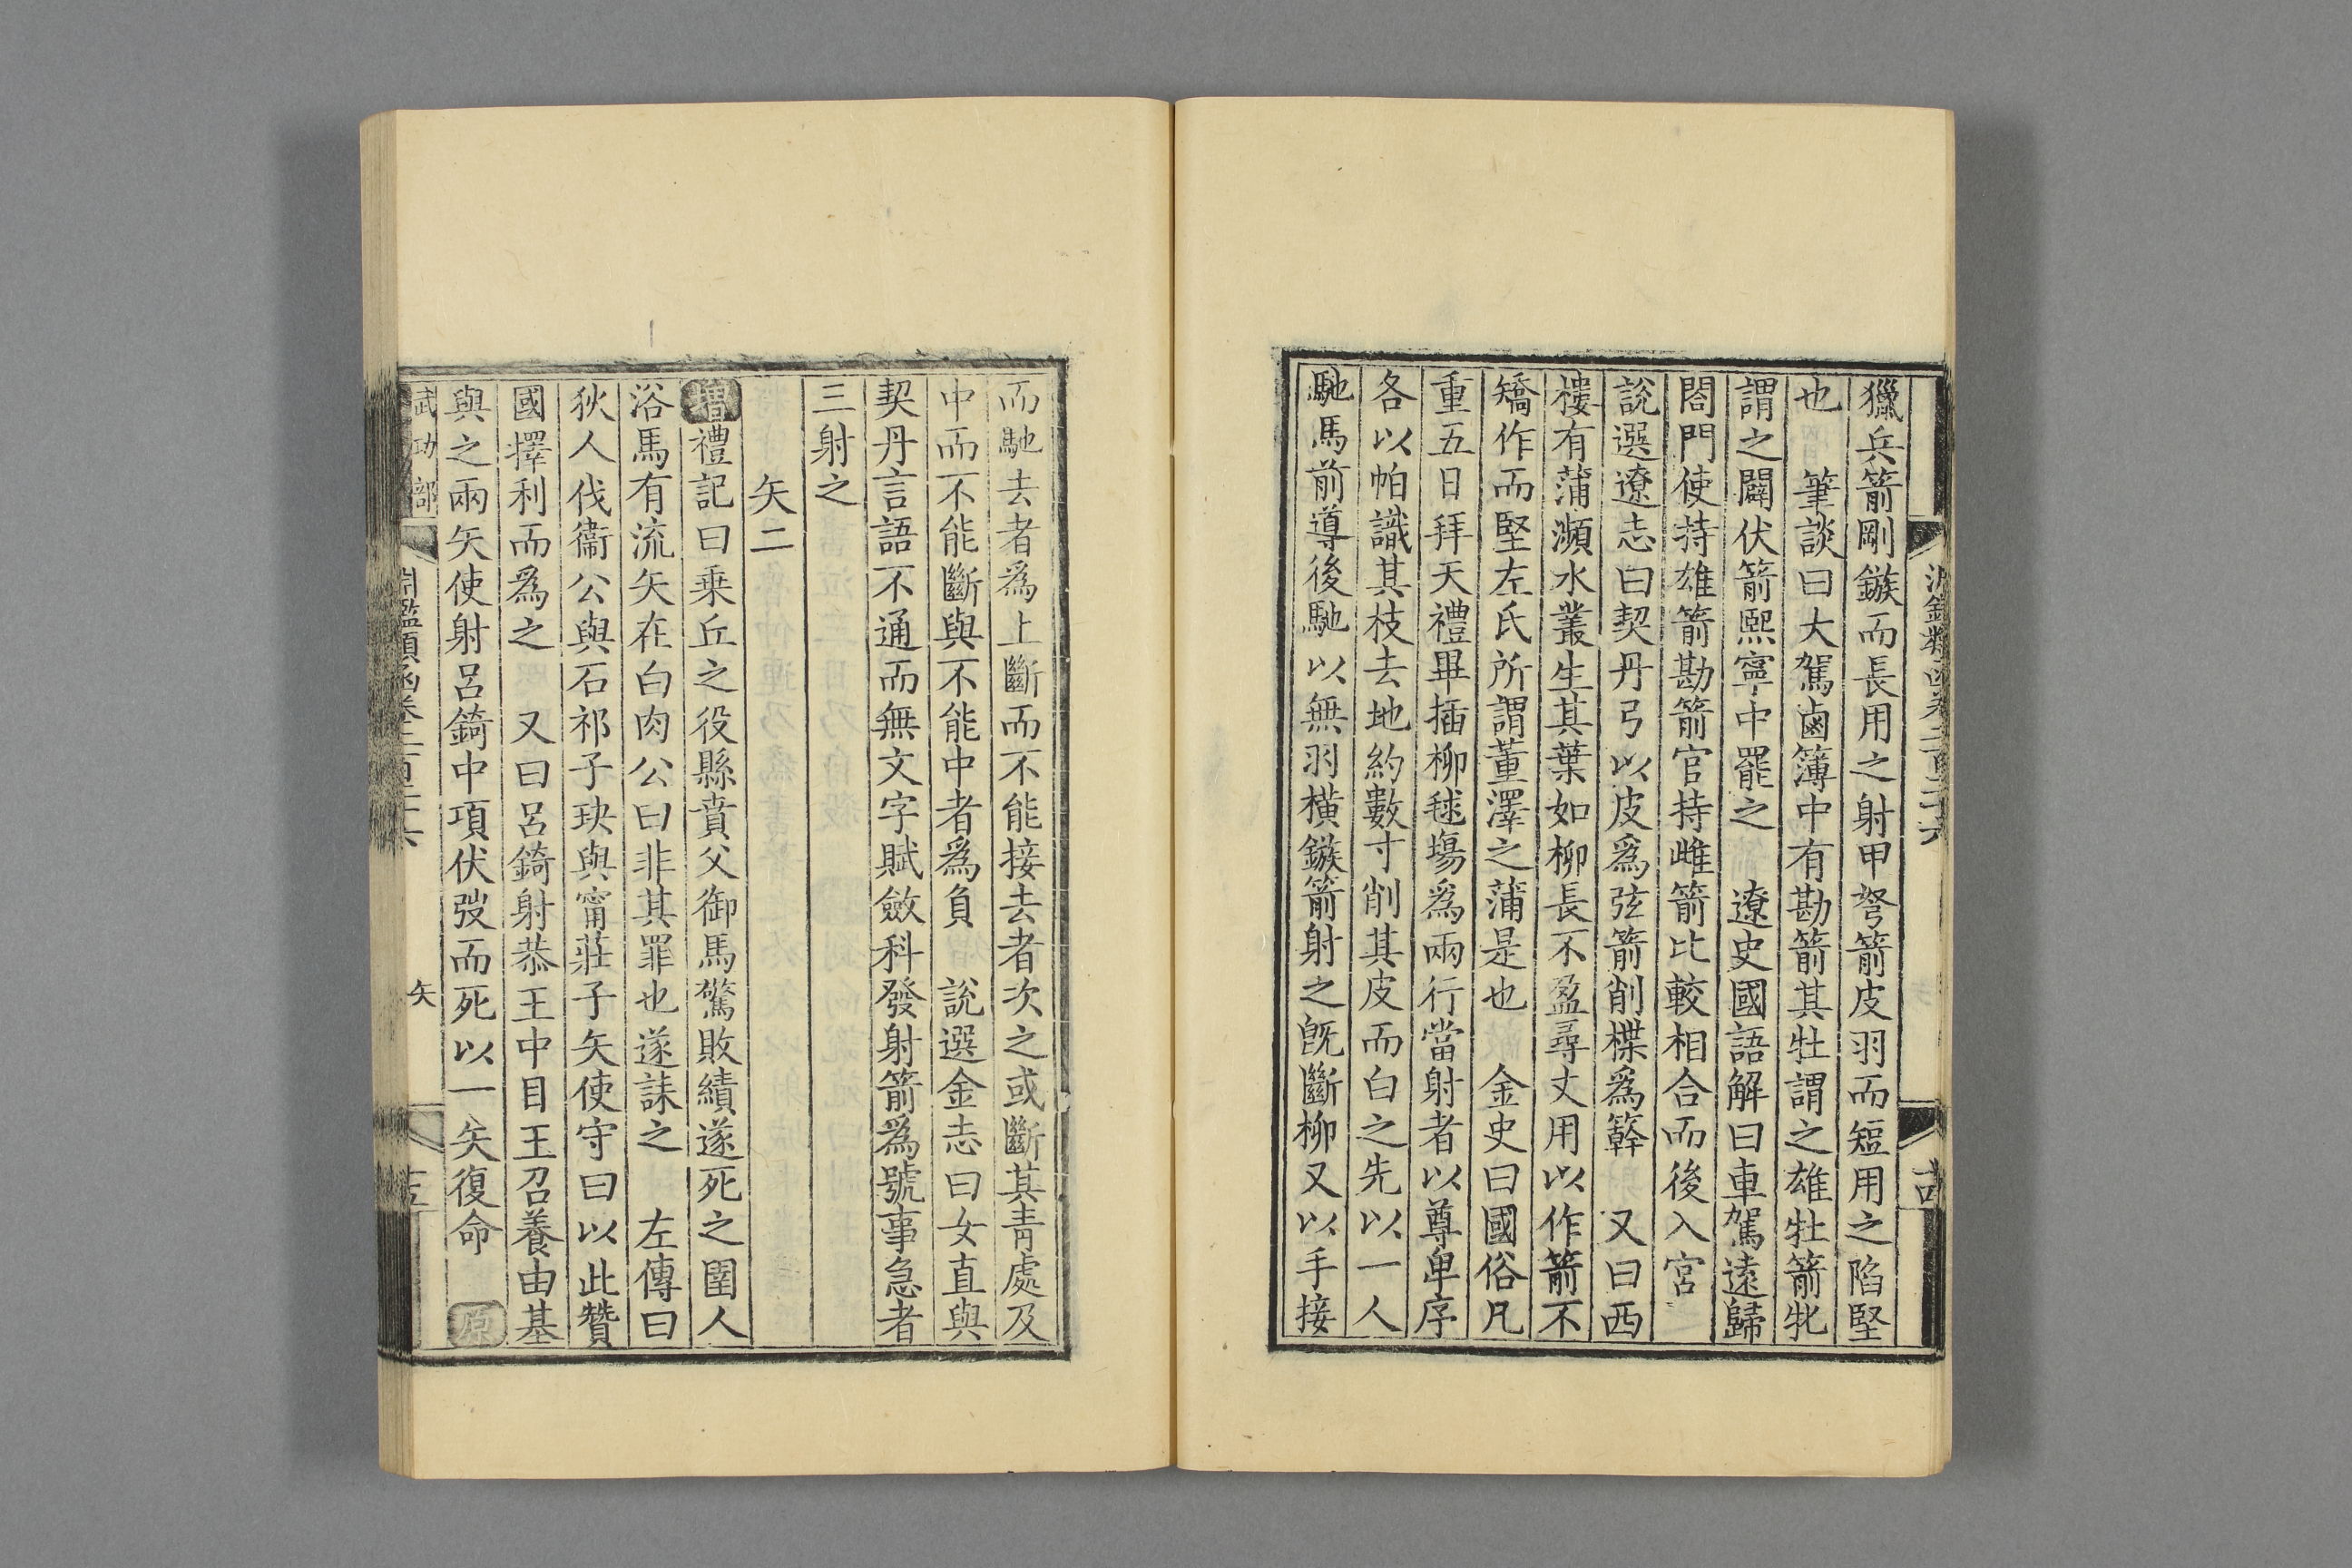 淵鑑類函卷二百二十六
古
獵兵箭剛鏃而長用之射甲弩箭皮羽而短用之陷堅
也　筆談曰大駕鹵簿中有勘箭其牡謂之雄牡箭牝
謂之闢伏箭熙寧中罷之　遼史國語解曰車駕遠歸
閤門使持雄箭勘箭官持雌箭比較相合而後入宮
說選遼志曰契丹弓以皮爲弦箭削樺爲簳　又曰西
樓有蒲瀕水叢生其葉如柳長不盈尋丈用以作箭不
矯作而堅左氏所謂董澤之蒲是也　金史曰國俗凡
重五日拜天禮畢插柳毬場爲兩行當射者以尊卑序
各以帕識其枝去地約數寸削其皮而白之先以一人
馳馬前導後馳以無羽橫鏃箭射之旣斷柳又以手接
而馳去者爲上斷而不能接去者次之或斷其靑處及
中而不能斷與不能中者爲負　說選金志曰女直與
契丹言語不通而無文字賦斂科發射箭爲號事急者
三射之
矢二
增禮記曰乘丘之役縣賁父御馬驚敗績遂死之圉人
浴馬有流矢在白肉公曰非其罪也遂誄之　左傳曰
狄人伐衞公與石祁子玦與甯莊子矢使守曰以此贊
國擇利而爲之　又曰呂錡射恭王中目王召養由基
與之兩矢使射呂錡中項伏弢而死以一矢復命　原
武功部
淵鑑類函卷二百二十六
矢